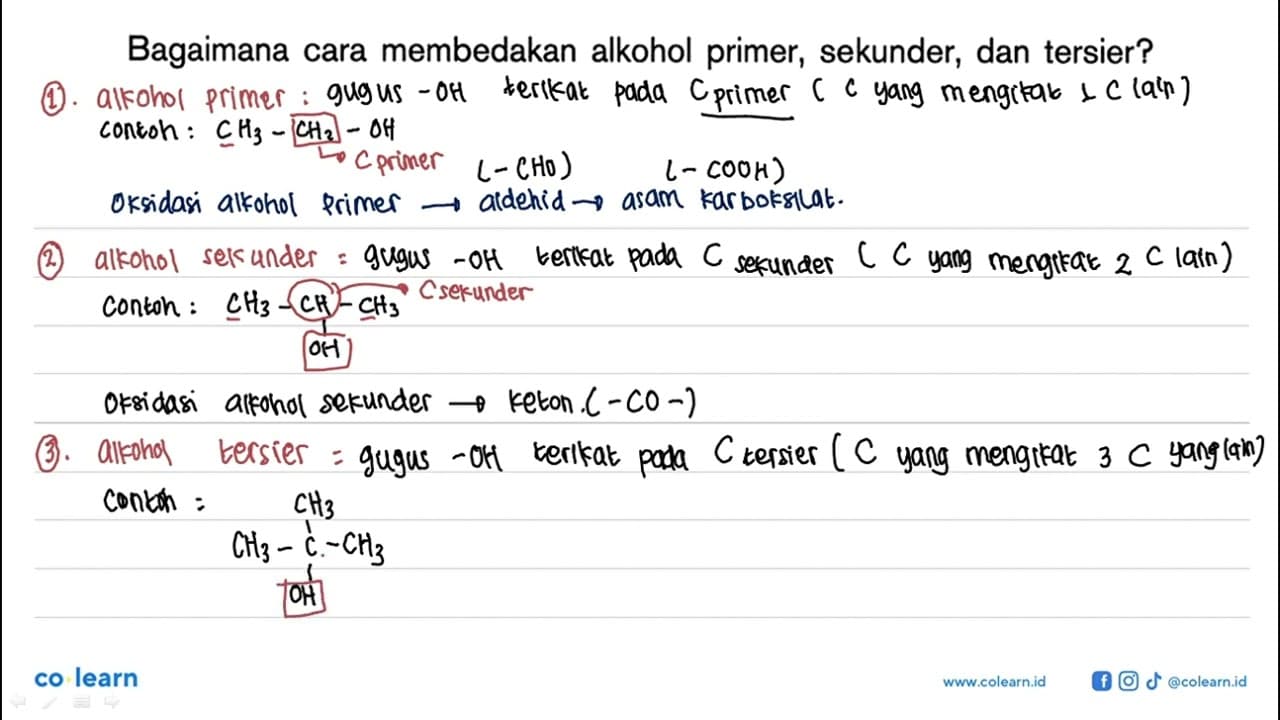 Bagaimana cara membedakan alkohol primer, sekunder, dan tersier?
①. alkohol primer : gugus -OH terikat pada C primer ( C yang mengikat 1 C lain )
contoh : CH3 - CH2 - OH
C primer
(-CHO) (-COOH)
Oksidasi alkohol primer → aldehid → asam karboksilat.
② alkohol sekunder = gugus -OH terikat pada C sekunder ( C yang mengikat 2 C lain )
Contoh : CH3 - CH - CH3 C sekunder
OH
Oksidasi alkohol sekunder → keton . ( - CO - )
③. alkohol tersier = gugus -OH terikat pada C tersier ( C yang mengikat 3 C yang lain )
Contoh : CH3
CH3 - C. - CH3
OH
co learn
www.colearn.id @colearn.id